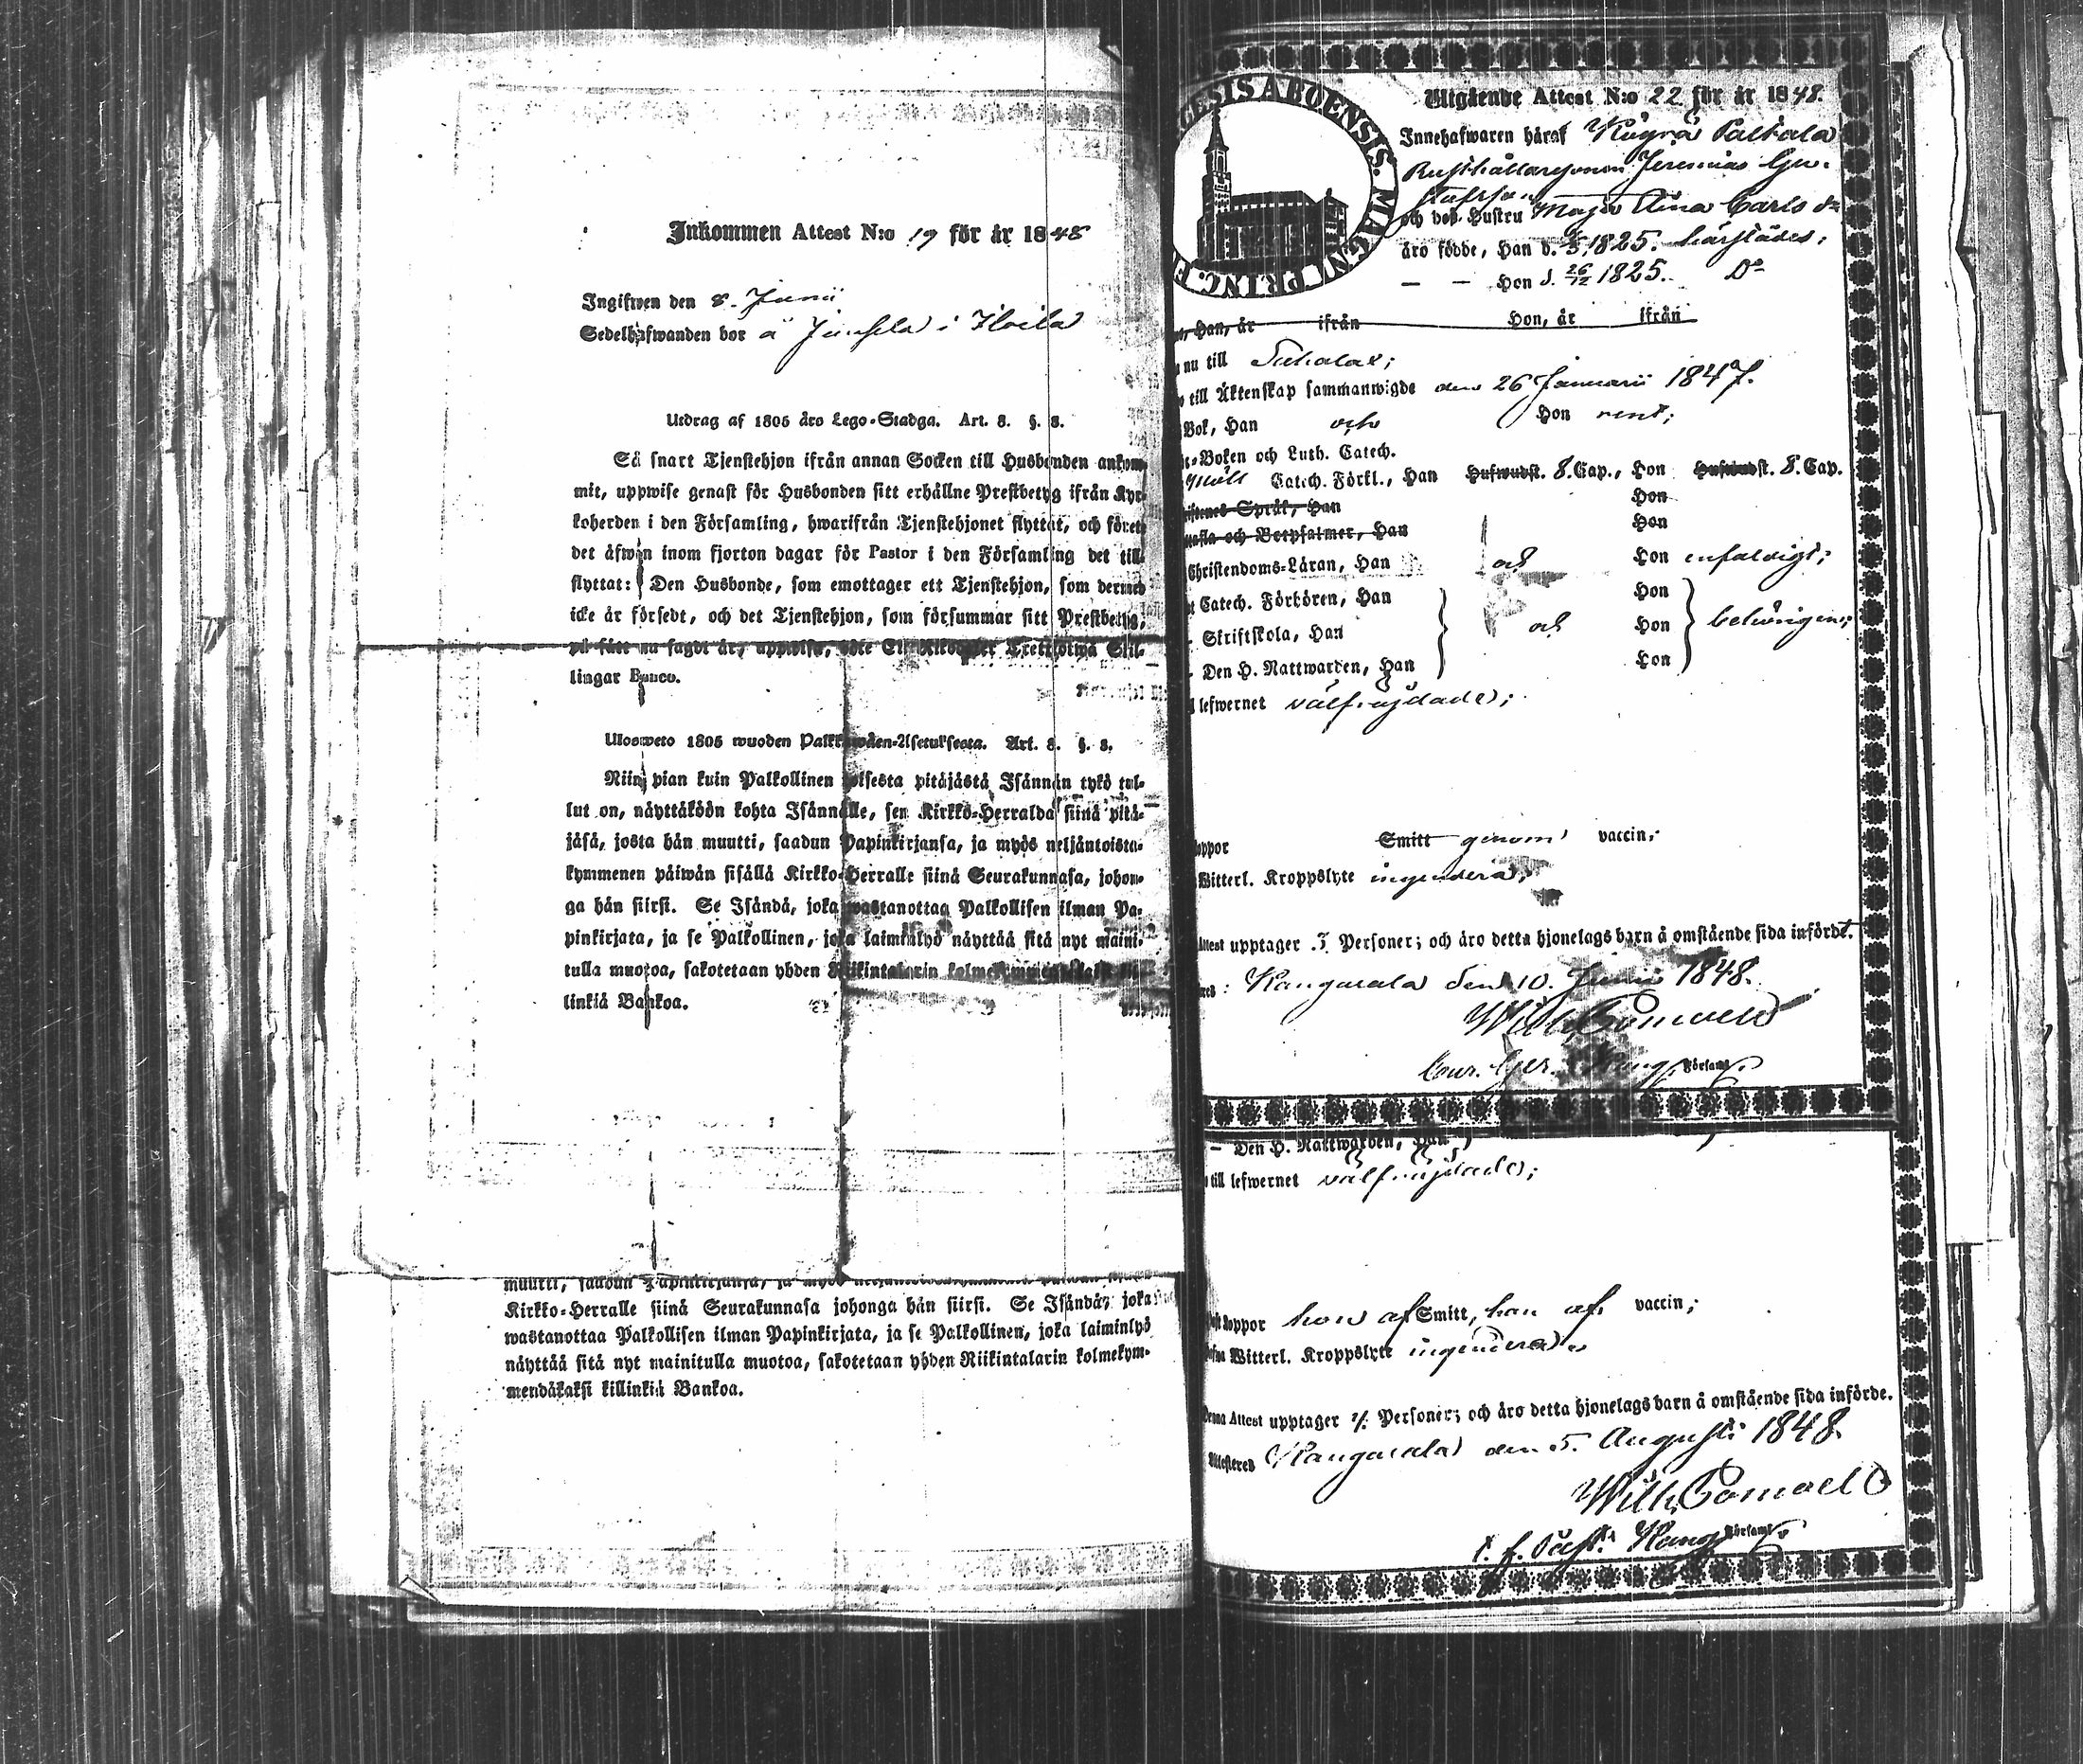 Inkommen Attest N:o 19 för år 1848
Ingifwen den 8. Junii
Sedelhafwanden bor å Junsela i Iloila
Utdrag af 1805 års Lego-Stadga. Art. 8. §. 8.
Så snart Tjenstehjon ifrån annan Socken till Husbonden ankom-
mit, uppwise genast för Husbonden sitt erhållne Prestbetyg ifrån Kyr-
koherden i den Församling, hwarifrån Tjenstehjonet flyttat, och förete
det äfwen inom fjorton dagar för Pastor i den Församling det till
flyttat: Den Husbonde, som emottager ett Tjenstehjon, som dermed
icke är försedt, och det Tjenstehjon, som försummar sitt Prestbetyg,
på sätt nu sagdt är, uppwisa, böte En Riksdaler Trettiotwå Skil-
lingar Banco.
Ulosweto 1805 wuoden Palkkawäen-Asetuksesta. Art. 8. §. 8.
Niin pian kuin Palkollinen toisesta pitäjästä Isännän tykö tul-
lut on, näyttäköön kohta Isännälle, sen Kirkko-Herralda siinä pitä-
jäsä, josta hän muutti, saadun Papinkirjansa, ja myös neljäntoista-
kymmenen päiwän sisällä Kirkko-Herralle siinä Seurakunnasa, johon-
ga hän siirsi. Se Isändä, joka wastanottaa Palkollisen ilman Pa-
pinkirjata, ja se Palkollinen, joka laiminlyö näyttää sitä nyt maini-
tulla muotoa, sakotetaan yhden Riikintalarin kolmekymmendäkaksi kil-
linkiä Bankoa.
muutti, saadun Papinkirjansa, ja myös
Kirkko-Herralle siinä Seurakunnasa johonga hän siirsi. Se Isändä, joka
wastanottaa Palkollisen ilman Papinkirjata, ja se Palkollinen, joka laiminlyö
näyttää sitä nyt mainitulla muotoa, sakotetaan yhden Riikintalarin kolmekym-
mendäkaksi killinkiä Bankoa.
ABOENSIS. MAGN. PRINC. F
Utgående Attest N:o 22 för år 1848.
Innehafwaren häraf
Rusthållaresonen Jeremias Gu-
stafsson
och dess Hustru Maja Stina Carls dr
äro födde, Han d. 1825. härstädes;
— — Hon d. 26/12 1825. Do
Han, år ifrån Hon, år ifrån
nu till Sahalax;
till Äktenskap sammanwigde den 26 Januarii 1847.
Bok, Han och Hon rent;
Boken och Luth. Catech.
Catech. Förkl., Han Hufwudst. 8. Cap., Hon Hufwudst. 8. Cap.
Språk, Han Hon
tafla och Botpsalmer, Han Hon
Christendoms-Läran, Han och Hon enfaldigt;
Catech. Förhören, Han Hon
Skriftskola, Han och Hon behörigen;
Den H. Nattwarden, Han Hon
lefwernet välfrejdade;
koppor Smitt genom vaccin;
Witterl. Kroppslyte ingendera;
Attest upptager 3 Personer; och äro detta hjonelags barn å omstående sida införde.
Kangasala den 10. Junii 1848.
Församl.
— Den H. Nattwarden, Han
till lefwernet välfrejdade;
koppor hon af Smitt, han af vaccin;
Witterl. Kroppslyte ingendera.
Denna Attest upptager Personer; och äro detta hjonelags barn å omstående sida införde.
Attesteres Kangasala den 5. Augusti 1848.
t. f. Past. Kang. Församl.